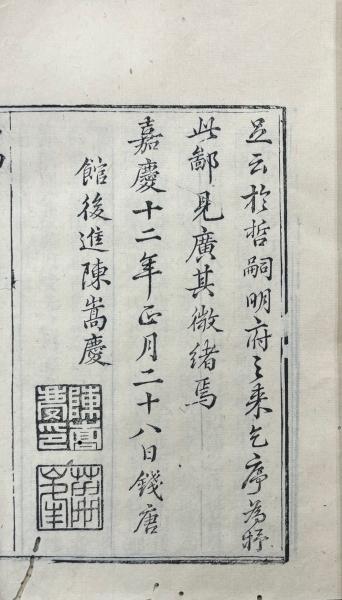 足云於哲嗣明府之来乞序為抒
此鄙見廣其微緒焉
嘉慶十二年正月二十八日錢唐
館後進陳嵩慶
陳嵩慶印